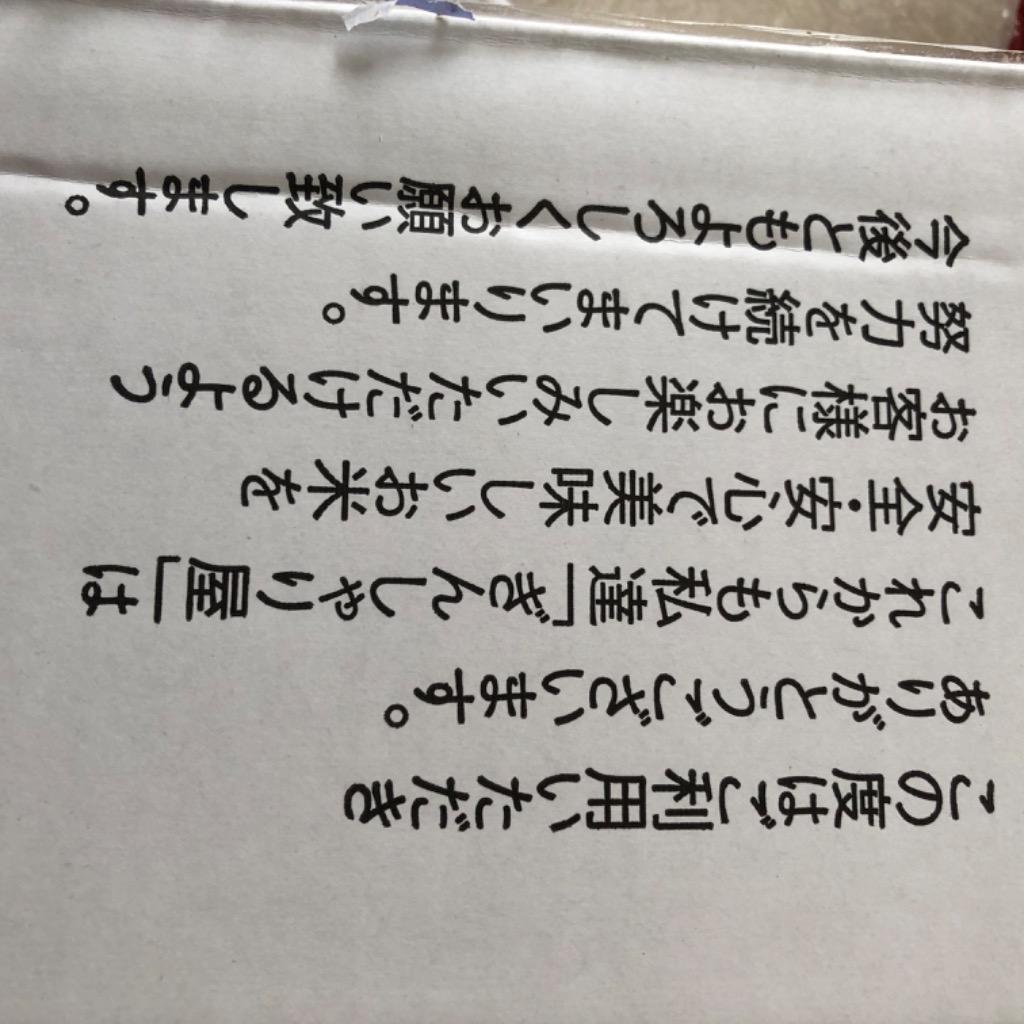 この度はご利用いただき
ありがとうございます。
これからも私達「ぎんしゃり屋」は
安全・安心で美味しいお米を
お客様にお楽しみいただけるよう
努力を続けてまいります。
今後ともよろしくお願い致します。